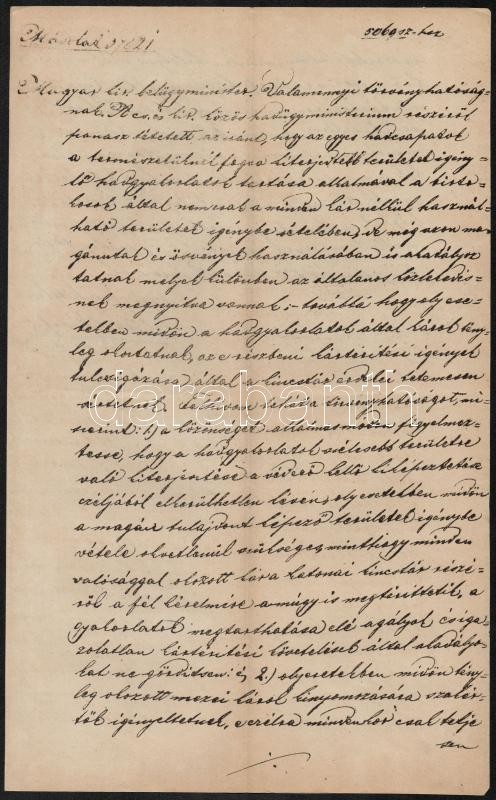 Másolat 57021.
5069 sz-hoz
Magyar kir. belügyminister. Valamennyi törvényhatóság-
nak. A cs. és kir. közös hadügyministerium részéről
panasz tétetett aziránt, hogy az egyes hadcsapatok
a természetüknél fogva kiterjedtebb területet igény-
lő hadgyakorlatok tartása alkalmával a birto-
kosok által nemcsak a minden kár nélkül használ-
ható területek igénybe vételében, de még azon ma-
gánutak és ösvények használásában is akadályoz-
tatnak melyek különben az általános közlekedés-
nek megnyitva vannak; – továbbá hogy oly ese-
tekben midőn a hadgyakorlatok által károk tény-
leg okoztatnak, az e részbeni kártérítési igények
túlcsigázása által a kincstár érdekei tetemesen
sértetnek. Felhívom tehát a törvényhatóságot, mi-
szerint: 1.) a községeket általánosságban figyelmez-
tesse, hogy a hadgyakorlatok szélesebb területre
való kiterjesztése a véderő kellő kiképeztetése
czéljából elkerülhetlen lévén, oly esetekben midőn
a magán tulajdont képező területek igénybe
vétele okvetlenül szükséges, minthogy minden
valósággal okozott kár a katonai kincstár részé-
ről a fél kérelmére amúgy is megtéríttetik, a
gyakorlatok megtarthatása elé agályok és iga-
zolatlan kártérítési követelések által akadályo-
kat ne gördítsen: és 2.) oly esetekben midőn tény-
leg okozott mezei károk kinyomozására szakér-
tők igényeltetnek, e czélra mindenkor csak tetje
sen
darabanth